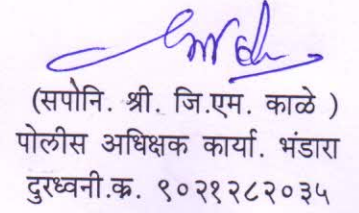 (सपोनि. श्री. जि.एम. काळे )
पोलीस अधिक्षक कार्या. भंडारा
दुरध्वनी.क्र. ९०२१२८२०३५